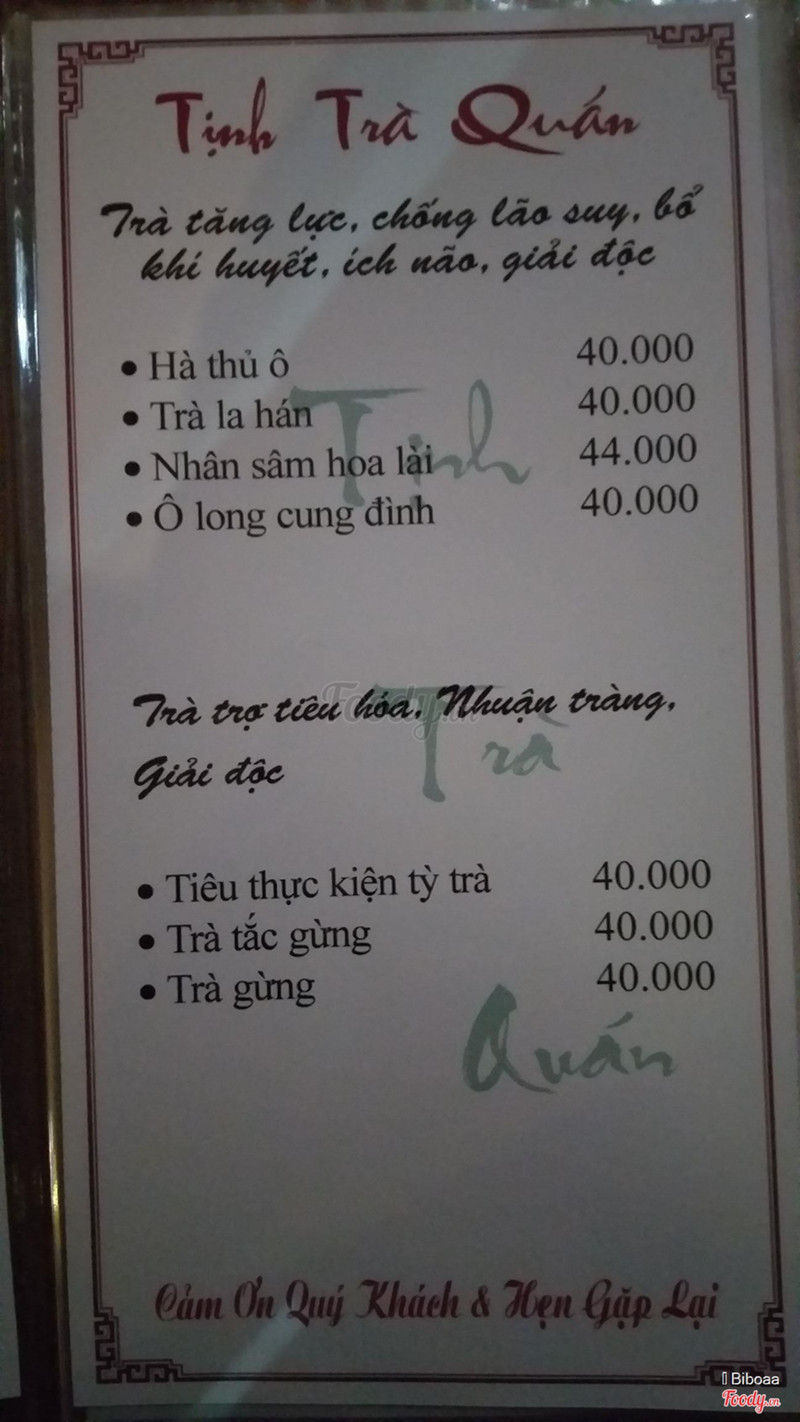 Tịnh Trà Quán
Trà tăng lực, chống lão suy, bổ
khí huyết, ích não, giải độc
• Hà thủ ô 40.000
• Trà la hán 40.000
• Nhân sâm hoa lài 44.000
• Ô long cung đình 40.000
Tịnh
Trà trợ tiêu hóa, Nhuận tràng,
Giải độc
Trà
Foody.vn
• Tiêu thực kiện tỳ trà 40.000
• Trà tắc gừng 40.000
• Trà gừng 40.000
Quán
Cảm Ơn Quý Khách & Hẹn Gặp Lại
Biboaa
Foody.vn